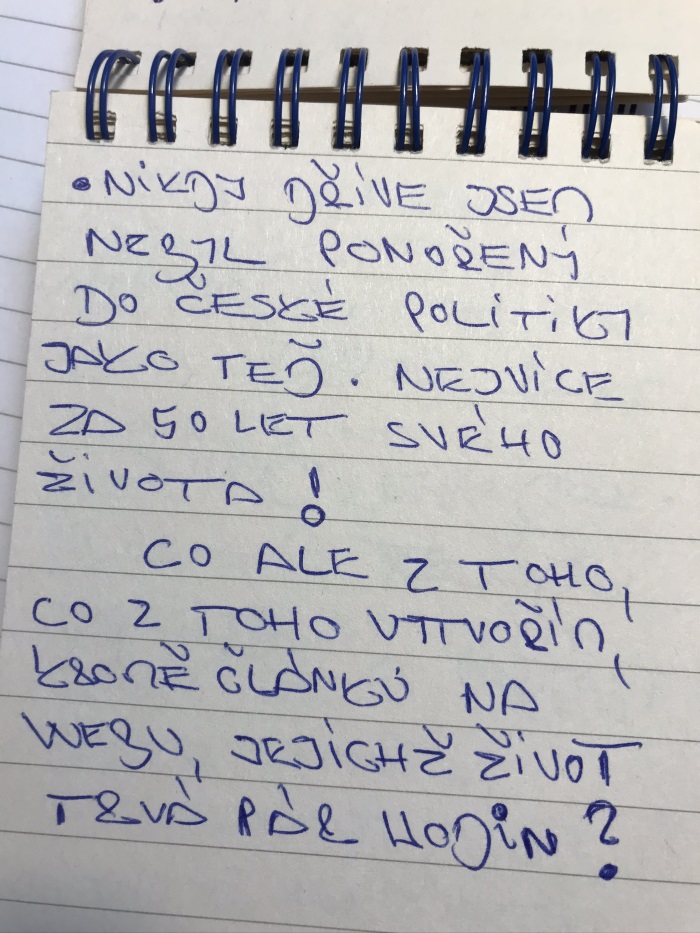 • NIKDY DŘÍVE JSEM
NEBYL PONOŘENÝ
DO ČESKÉ POLITIKY
JAKO TEĎ. NEJVÍCE
ZA 50 LET SVÉHO
ŽIVOTA!
CO ALE Z TOHO,
CO Z TOHO VYTVOŘÍM,
KROMĚ ČLÁNKŮ NA
WEBU, JEJICHŽ ŽIVOT
TRVÁ PÁR HODIN?